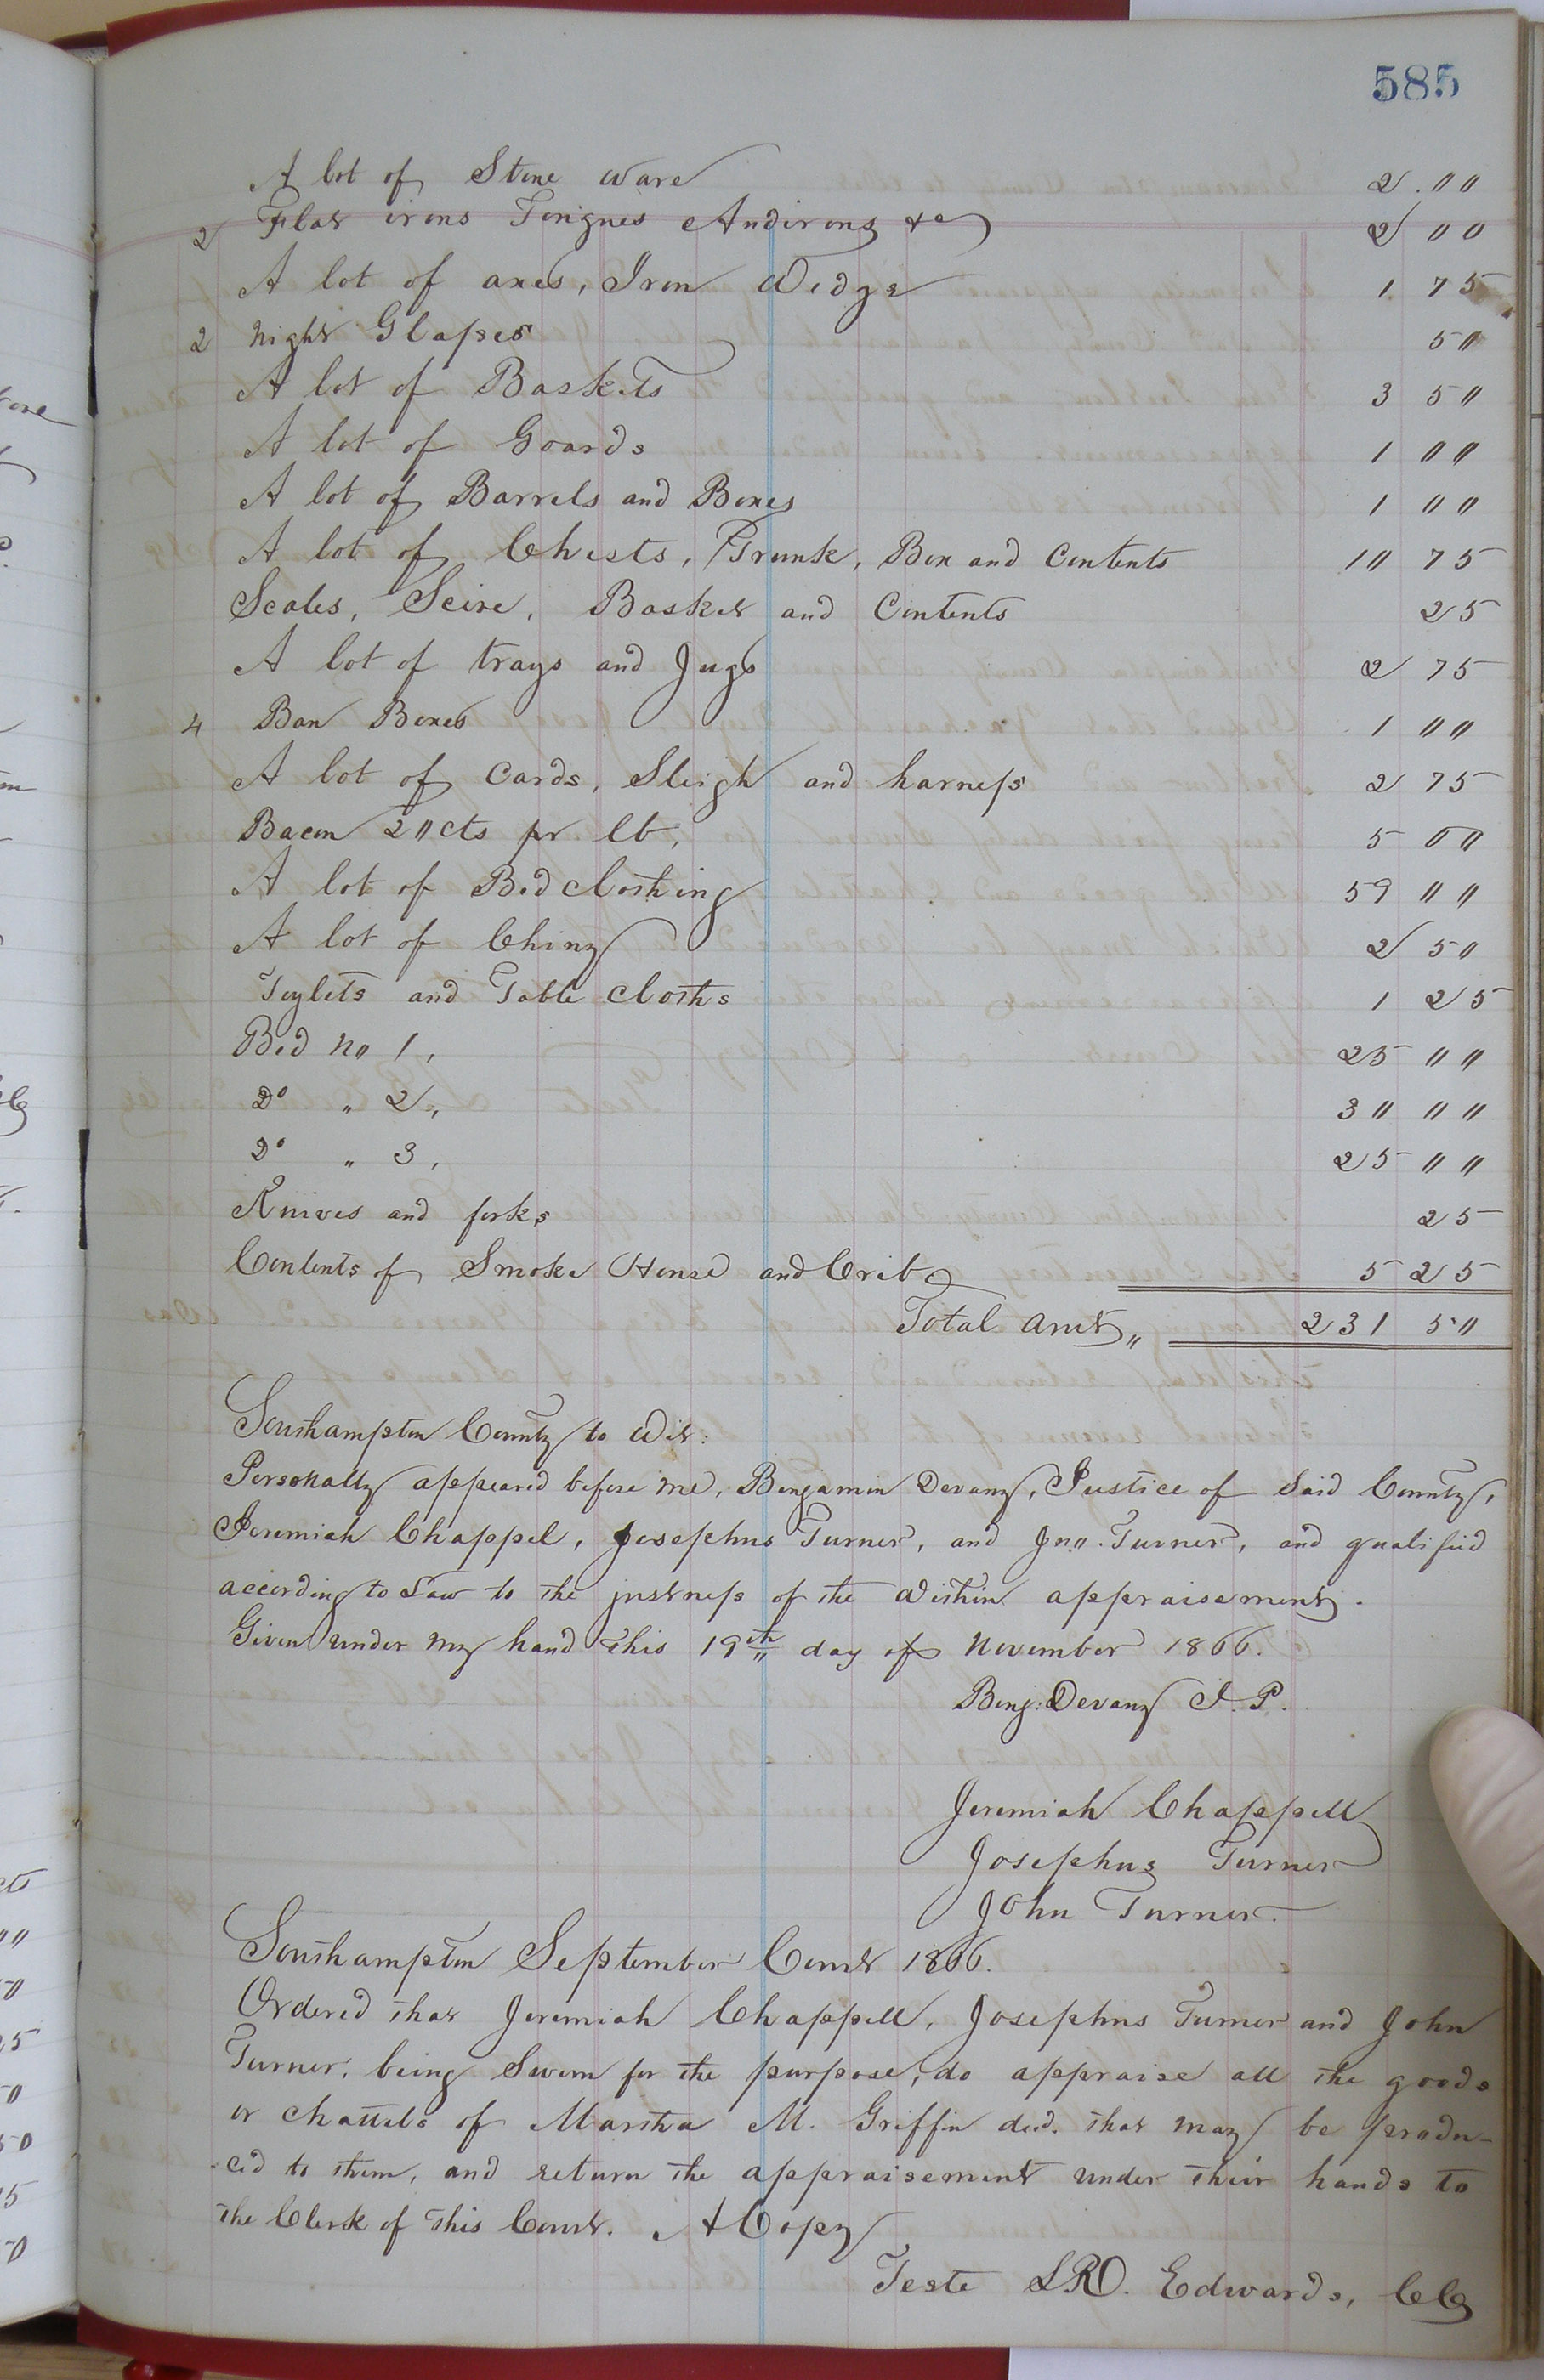 585
A lot of Stone ware 2.00
2 Flat irons Tongues Andirons &c 2 00
A lot of axes, Iron Wedge 1 75
2 night Glasses 50
A lot of Baskets 3 50
A lot of Goards 1 00
A lot of Barrels and Boxes 1 00
A lot of Chests, Trunk, Box and Contents 10 75
Scales, Seive, Basket and Contents 25
A lot of trays and Jugs 2 75
4 Ban Boxes 1 00
A lot of Cards, Sleigh and harness 2 75
Bacon 20cts pr lb, 5 00
A lot of Bed clothing 59 00
A lot of Chiny 2 50
Toylets and Table cloths 1 25
Bed no 1, 25 00
Do " 2, 30 00
Do " 3, 25 00
Knives and forks 25
Contents of Smoke House and Crib 5 25
Total amt,, 231 50
Southampton County to Wit:
Personally appeared before me, Benjamin Devany, Justice of Said County,
Jeremiah Chappel, Josephus Turner, and Jno. Turner, and qualified
according to Law to the justness of the within appraisement.
Given under my hand this 19th day of November 1866.
Benj: Devany J. P.
Jeremiah Chappell
Josephus Turner
John Turner.
Southampton September Court 1866.
Ordered that Jeremiah Chappell, Josephus Turner and John
Turner, being Sworn for the purpose, do appraise all the goods
or chattels of Martha M. Griffin decd. that may be produ-
-ced to them, and return the appraisement under their hands to
the Clerk of this Court. A Copy
Teste LRO. Edwards, CC